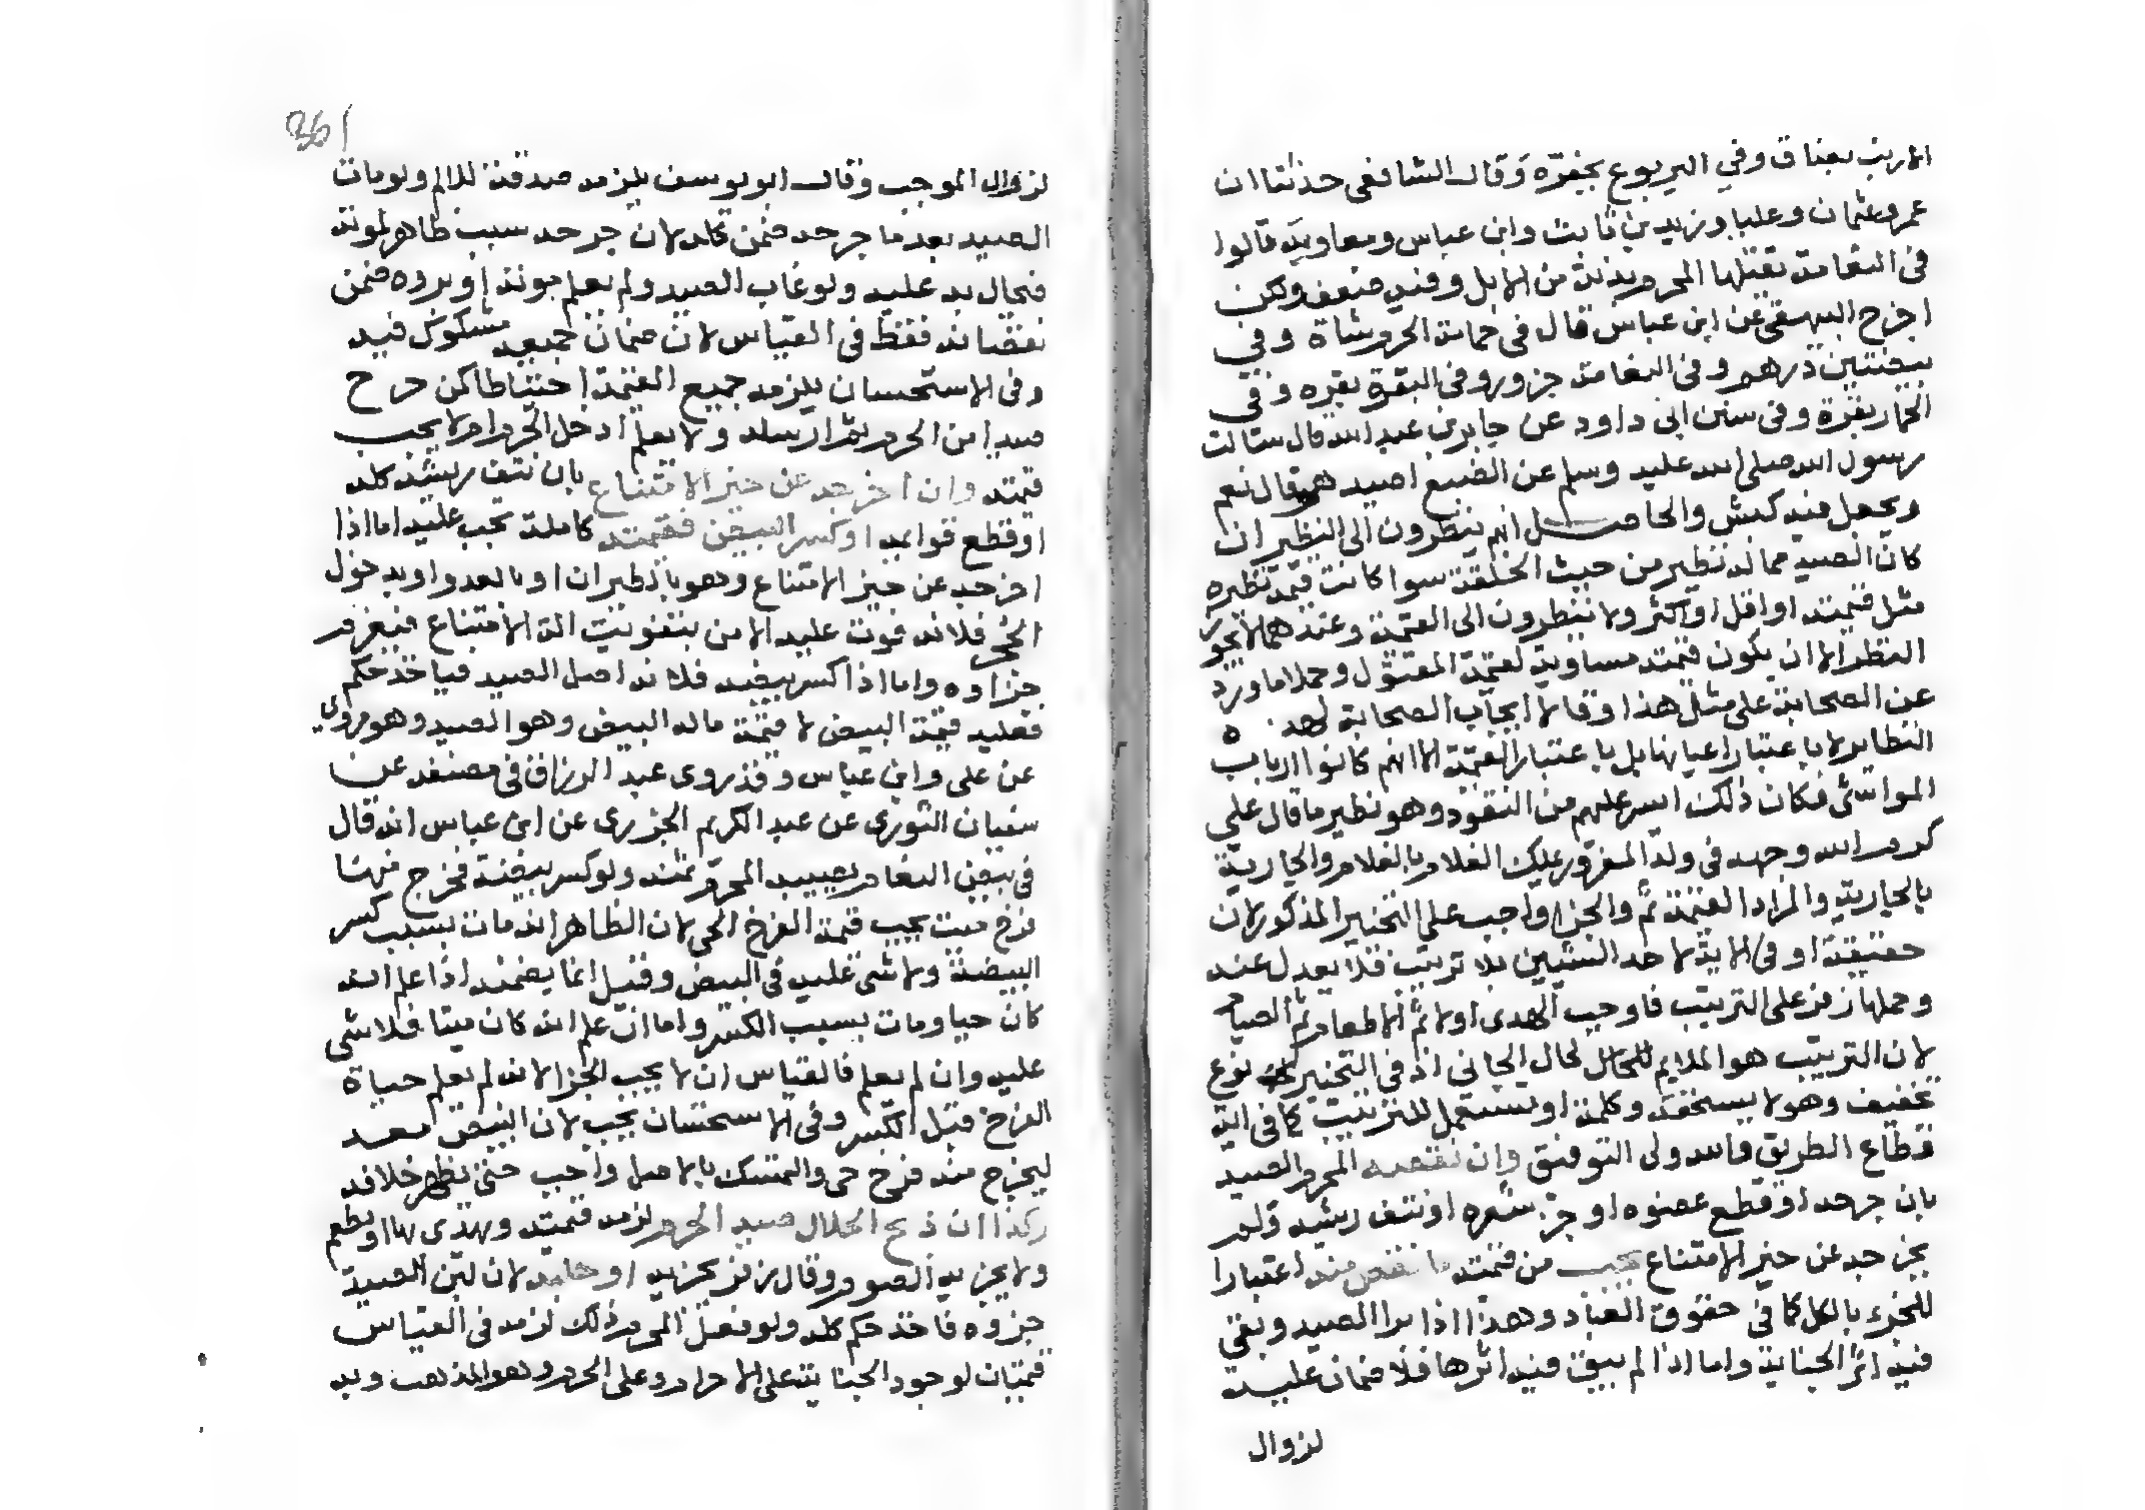 الارنب بعناق وفي اليربوع بجفرة وقال الشافعي حدثنا ان
عمر وعثمان وعليا وزيد بن ثابت وابن عباس ومعاوية قالوا
في النعامة يقتلها المحرم بدنة من الابل وفيه ضعف ولكن
اخرج البيهقي عن ابن عباس قال في حمامة الحرم شاة وفي
بيضتين درهم وفي النعامة جزور وفي البقرة بقره وفي
الحمار بقرة وفي سنن ابي داود عن جابر بن عبد الله قال سئالت
رسول الله صلى الله عليه وسلم عن الضبع اصيد هو قال نعم
ويجعل فيه كبش والحاصل انهم ينظرون الى النظير ان
كان الصيد مما له نظير من حيث الخلقة سوا كانت قيمة نظيره
مثل قيمته او اقل او اكثر ولا ينظرون الى القيمة وعندهما لا يجوز
النظر الا ان يكون قيمته مساوية لقيمة المقتول وحملا ما ورد
عن الصحابة على مثل هذا وقالا ايجاب الصحابة لهذه
النظاير لا باعتبار اعيانها بل باعتبار القيمة الا انهم كانوا ارباب
المواشي فكان ذلك ايسر عليهم من النقود وهو نظير ما قال علي
كرم الله وجهه في ولد المغرور عليك الغلام بالغلام والجارية
بالجارية والمراد القيمة ثم والجزا واجب على التخيير المذكور لان
حقيقة او في الاية لاحد الشيئين بلا ترتيب فلا يعدل عنه
وحملها زفر على الترتيب فاوجب الهدى اولا ثم الاطعام ثم الصيام
لان الترتيب هو الملايم لحال الجاني اذ في التخيير نوع
تخفيف وهو لا يستحقه وكلمة او تستعمل للترتيب كما في اية
قطاع الطريق والله ولى التوفيق وان نقصه المحرم والصيد
بان جرحه او قطع عضوه او جز شعره او نتف ريشه ولم
يخرجه عن حيز الامتناع يجب من قيمته ما نقص منه اعتبارا
للجزء بالكل كما في حقوق العباد وهذا اذا برا الصيد وبقي
فيه اثر الجناية واما اذا لم يبق فيه اثرها فلا ضمان عليه
لزوال
136
لزوال الموجب وقال ابو يوسف يلزمه صدقة للالم ولو مات
الصيد بعد ما جرحه ضمن كله لان جرحه سبب ظاهر لموته
فيحال به عليه ولو غاب الصيد ولم يعلم موته او بروه ضمن
نقصانه فقط في القياس لان ضمان جميعه مشكوك فيه
وفي الاستحسان يلزمه جميع القيمة احتياطا كمن جرح
صيدا من الحرم ثم ارسله ولا يعلم ادخل الحرم ام لا يجب
قيمته وان اخرجه عن حيز الامتناع بان نتف ريشه كله
او قطع قوايمه او كسر البيض فقيمته كاملة تجب عليه اما اذا
اخرجه عن حيز الامتناع وهو بالطيران او بالعدو او بدخول
الجحر فلانه فوت عليه الامن بتفويت الة الامتناع فيغرم
جزاوه واما اذا كسر بيضه فلانه اصل الصيد فياخذ حكمه
فعليه قيمة البيض لا قيمة ماله البيض وهو الصيد وهو مروي
عن علي وابن عباس وقد روى عبد الرزاق في مصنفه عن
سفيان الثوري عن عبد الكريم الجزري عن ابن عباس انه قال
في بيض النعام يصيبه المحرم ثمنه ولو كسر بيضة فخرج منها
فرخ ميت يجب قيمة الفرخ الحي لان الظاهر انه مات بسبب كسر
البيضة ولا شي عليه في البيض وقيل انما يضمنه اذا علم انه
كان حيا ومات بسبب الكسر واما ان علم انه كان ميتا فلا شي
عليه وان لم يعلم فالقياس ان لا يجب الجزا لانه لم يعلم حياة
الفرخ قبل الكسر وفي الاستحسان يجب لان البيض معد
ليخرج منه فرخ حي والتمسك بالاصل واجب حتى يظهر خلافه
وكذا ان ذبح الحلال صيد الحرم لزمه قيمته ويهدى بها او يطعم
ولا يجزيه الصوم وقال زفر يجزيه او حلبه لان لبن الصيد
جزوه فاخذ حكم كله ولو فعل المحرم ذلك لزمه في القياس
قيمتان لوجود الجناية على الاحرام وعلى الحرم وهو المذهب وبه